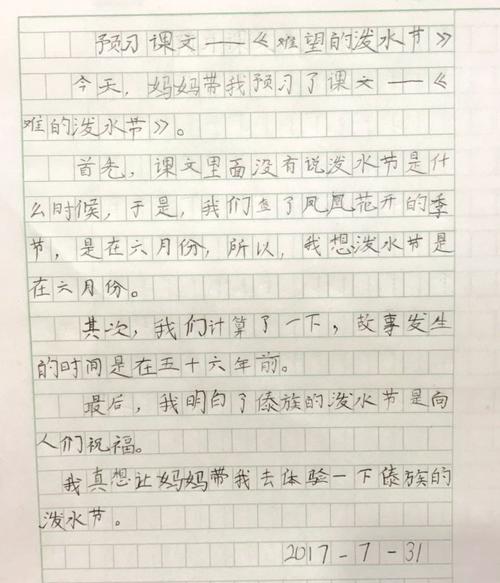 预习课文——《难望的泼水节》
今天,妈妈带我预习了课文——《
难的泼水节》。
首先,课文里面没有说泼水节是什
么时候,于是,我们查了凤凰花开的季
节,是在六月份,所以,我想泼水节是
在六月份。
其次,我们计算了一下,故事发生
的时间是在五十六年前。
最后,我明白了傣族的泼水节是向
人们祝福。
我真想让妈妈带我去体验一下傣族的
泼水节。
2017-7-31